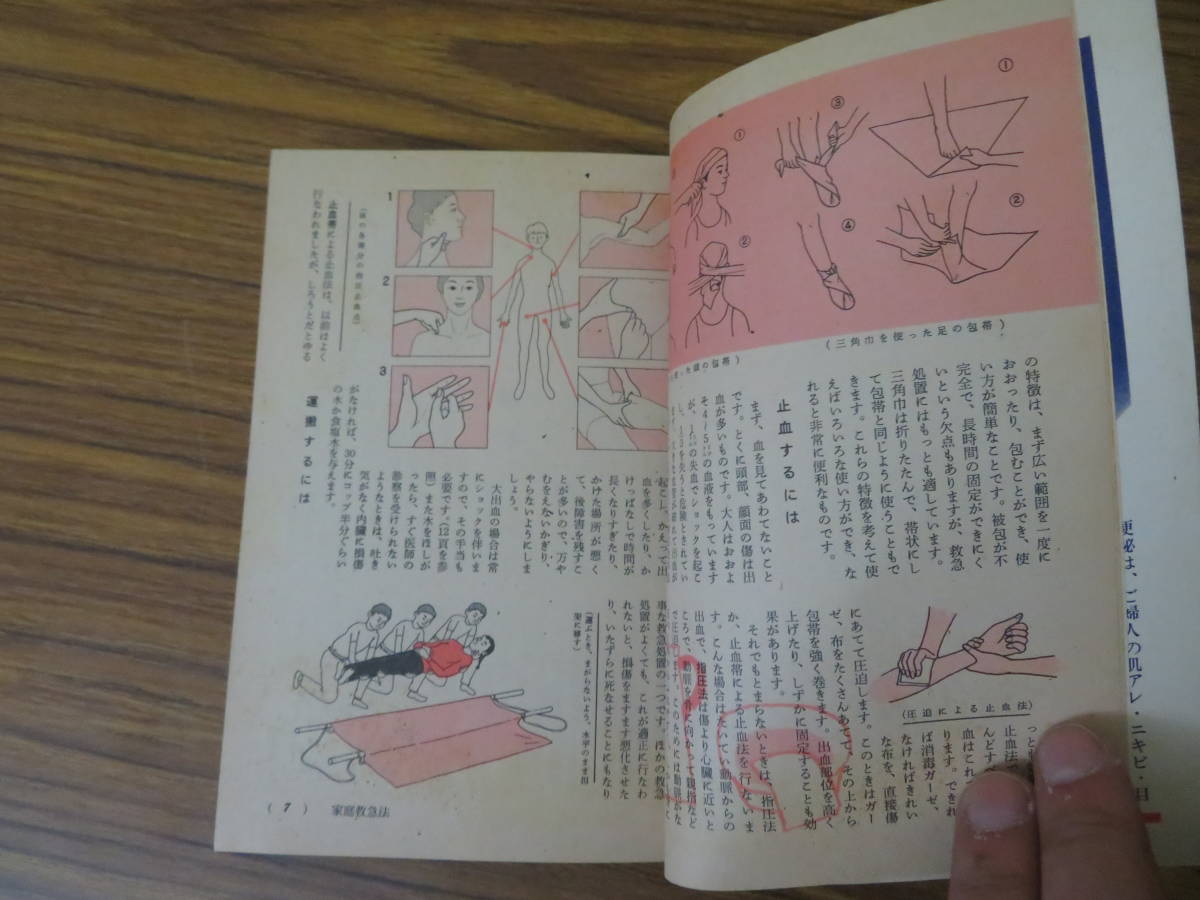 ①
③
①
②
④
②
(三角巾を使った足の包帯)
った頭の包帯)
の特徴は、まず広い範囲を一度に
おおったり、包むことができ、使
い方が簡単なことです。被包が不
完全で、長時間の固定ができにく
いという欠点もありますが、救急
処置にはもっとも適しています。
三角巾は折りたたんで、帯状にし
て包帯と同じように使うこともで
きます。これらの特徴を考えて使
えばいろいろな使い方ができ、な
れると非常に便利なものです。
止血するには
まず、血を見てあわてないこと
です。とくに頭部、顔面の傷は出
血が多いものです。大人はおおよ
の血液をもっています
の失血でショックを起こ
を失うと危険とされてい
(圧迫による止血法)
っとも
止血法
んどす
血はこれ
ります。できれ
ば消毒ガーゼ、
なければきれい
な布を、直接傷
にあてて圧迫します。このときはガー
ゼ、布をたくさんあてて、その上から
包帯を強く巻きます。出血部位を高く
上げたり、しずかに固定することも効
果があります。
それでもとまらないときは、指圧法
か、止血帯による止血法を行ないま
す。こんな場合はたいてい動脈からの
出血で、指圧法は傷より心臓に近いと
ころで、動脈を骨に向かって親指など
で圧迫します。このためには動脈がな
1
2
3
止血帯による止血法は、以前はよく
行なわれましたが、しろうとだとゆる
起こし、かえって出
血を多くしたり、か
けっぱなしで時間が
長くなりすぎたり、
かけた場所が悪く
て、後障害を残すこ
とが多いので、万や
むをえないかぎり、
やらないようにしま
しょう。
大出血の場合は常
にショックを伴いま
すので、その手当も
必要です(12頁を参
照)また水をほしが
ったら、すぐ医師の
診察を受けられない
ようなときは、吐き
気がなく内臓に損傷
がなければ、30分に
コップ半分ぐらい
の水か食塩水を与えます。
運搬するには
(運ぶとき、まがらないよう、水平のまま担
架に移す)
事な救急処置の一つです。ほかの救急
処置がよくても、これが適正に行なわ
れないと、損傷をますます悪化させた
り、いたずらに死なせることにもなり
(7) 家庭救急法
便秘は、ご婦人の肌アレ・ニキビ・目